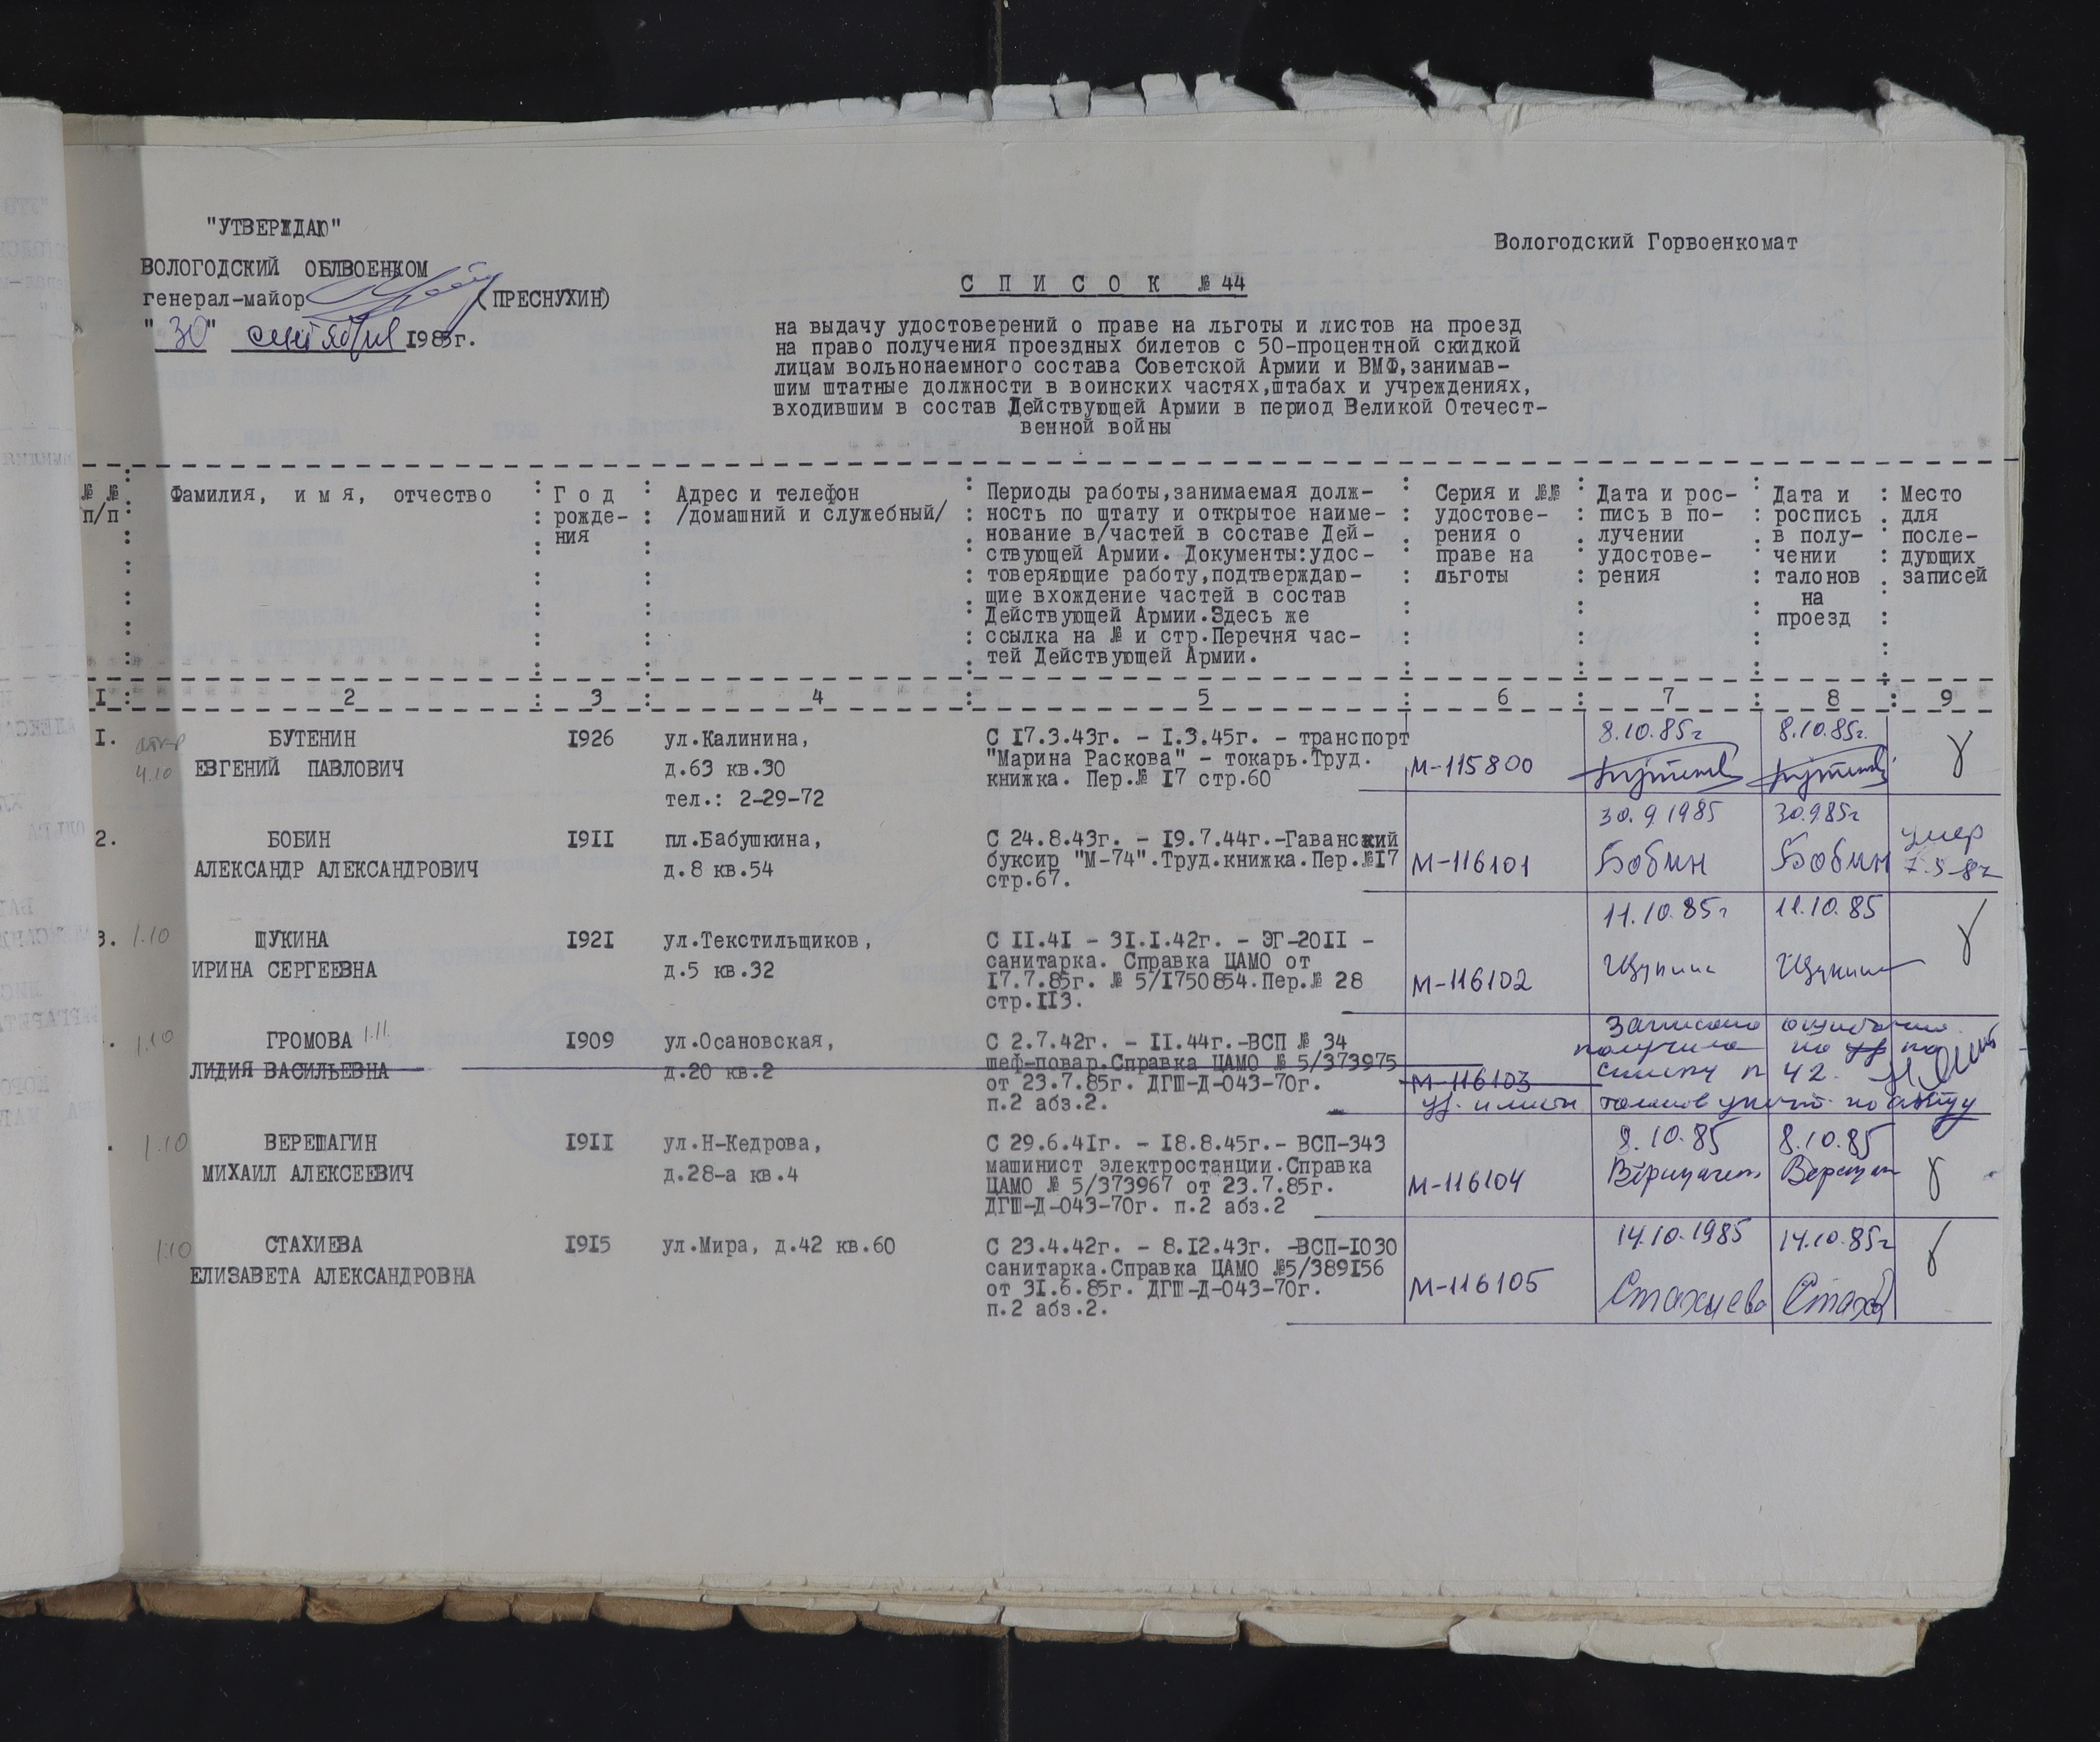 "УТВЕРЖДАЮ"
ВОЛОГОДСКИЙ ОБЛВОЕНКОМ
генерал-майор (ПРЕСНУХИН)
"30" сентября 1985г.
Вологодский Горвоенкомат
С П И С О К № 44
на выдачу удостоверений о праве на льготы и листов на проезд
на право получения проездных билетов с 50-процентной скидкой
лицам вольнонаемного состава Советской Армии и ВМФ,занимав-
шим штатные должности в воинских частях,штабах и учреждениях,
входившим в состав Действующей Армии в период Великой Отечест-
венной войны
№ №
п/п
Фамилия, и м я, отчество
Г о д
рожде-
ния
Адрес и телефон
/домашний и служебный/
Периоды работы,занимаемая долж-
ность по штату и открытое наиме-
нование в/частей в составе Дей-
ствующей Армии. Документы:удос-
товеряющие работу,подтверждаю-
щие вхождение частей в состав
Действующей Армии.Здесь же
ссылка на № и стр.Перечня час-
тей Действующей Армии.
Серия и №№
удостове-
рения о
праве на
льготы
Дата и рос-
пись в по-
лучении
удостове-
рения
Дата и
роспись
в полу-
чении
талонов
на
проезд
Место
для
после-
дующих
записей
I : 2 : 3 : 4 : 5 : 6 : 7 : 8 : 9
I.
4.10
БУТЕНИН
ЕВГЕНИЙ ПАВЛОВИЧ
I926
ул.Калинина,
д.63 кв.30
тел.: 2-29-72
С I7.3.43г. - I.3.45г. - транспорт
"Марина Раскова" - токарь.Труд.
книжка. Пер.№ I7 стр.60
М-115800
8.10.85г
8.10.85г.
2.
БОБИН
АЛЕКСАНДР АЛЕКСАНДРОВИЧ
I9II
пл.Бабушкина,
д.8 кв.54
С 24.8.43г. - I9.7.44г.-Гаванский
буксир "М-74".Труд.книжка.Пер.№I7
стр.67.
М-116101
30.9.1985
Бобин
30.9.85г
Бобин
умер
3. 1.10
ЩУКИНА
ИРИНА СЕРГЕЕВНА
I92I
ул.Текстильщиков,
д.5 кв.32
С II.4I - 3I.I.42г. - ЭГ-20II -
санитарка. Справка ЦАМО от
I7.7.85г. № 5/I750854.Пер.№ 28
стр.II3.
М-116102
11.10.85г
Щукина
11.10.85
Щукина
. 1.10
ГРОМОВА 1.11
ЛИДИЯ ВАСИЛЬЕВНА
I909
ул.Осановская,
д.20 кв.2
С 2.7.42г. - II.44г.-ВСП № 34
шеф-повар.Справка ЦАМО № 5/373975
от 23.7.85г. ДГШ-Д-043-70г.
п.2 абз.2.
М-116103
Записана ошибочно.
получила по уд по
списку № 42.
уд. и листы талонов уничт. по акту
. 1.10
ВЕРЕЩАГИН
МИХАИЛ АЛЕКСЕЕВИЧ
I9II
ул.Н-Кедрова,
д.28-а кв.4
С 29.6.4Iг. - I8.8.45г.- ВСП-343
машинист электростанции.Справка
ЦАМО № 5/373967 от 23.7.85г.
ДГШ-Д-043-70г. п.2 абз.2
М-116104
8.10.85
Верещагин
8.10.85
1.10
СТАХИЕВА
ЕЛИЗАВЕТА АЛЕКСАНДРОВНА
I9I5
ул.Мира, д.42 кв.60
С 23.4.42г. - 8.I2.43г. -ВСП-I030
санитарка.Справка ЦАМО №5/389I56
от 3I.6.85г. ДГШ-Д-043-70г.
п.2 абз.2.
М-116105
14.10.1985
Стахиева
14.10.85г